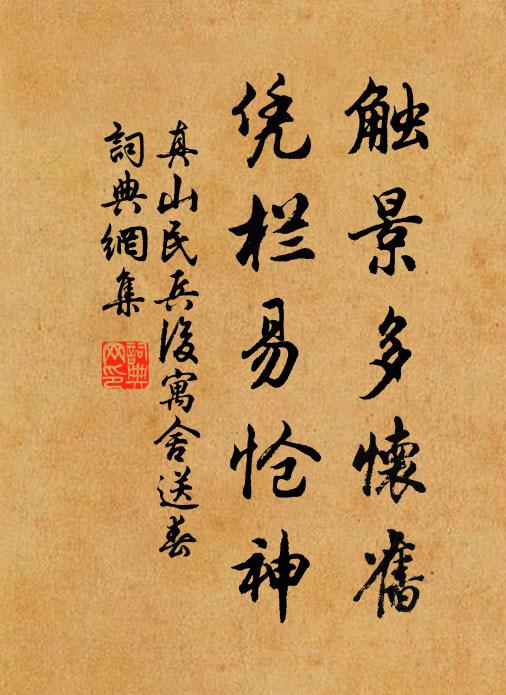 触景多懷舊
凭栏易怆神
真山民兵後寓舍送春
詞典網集
詞典网印